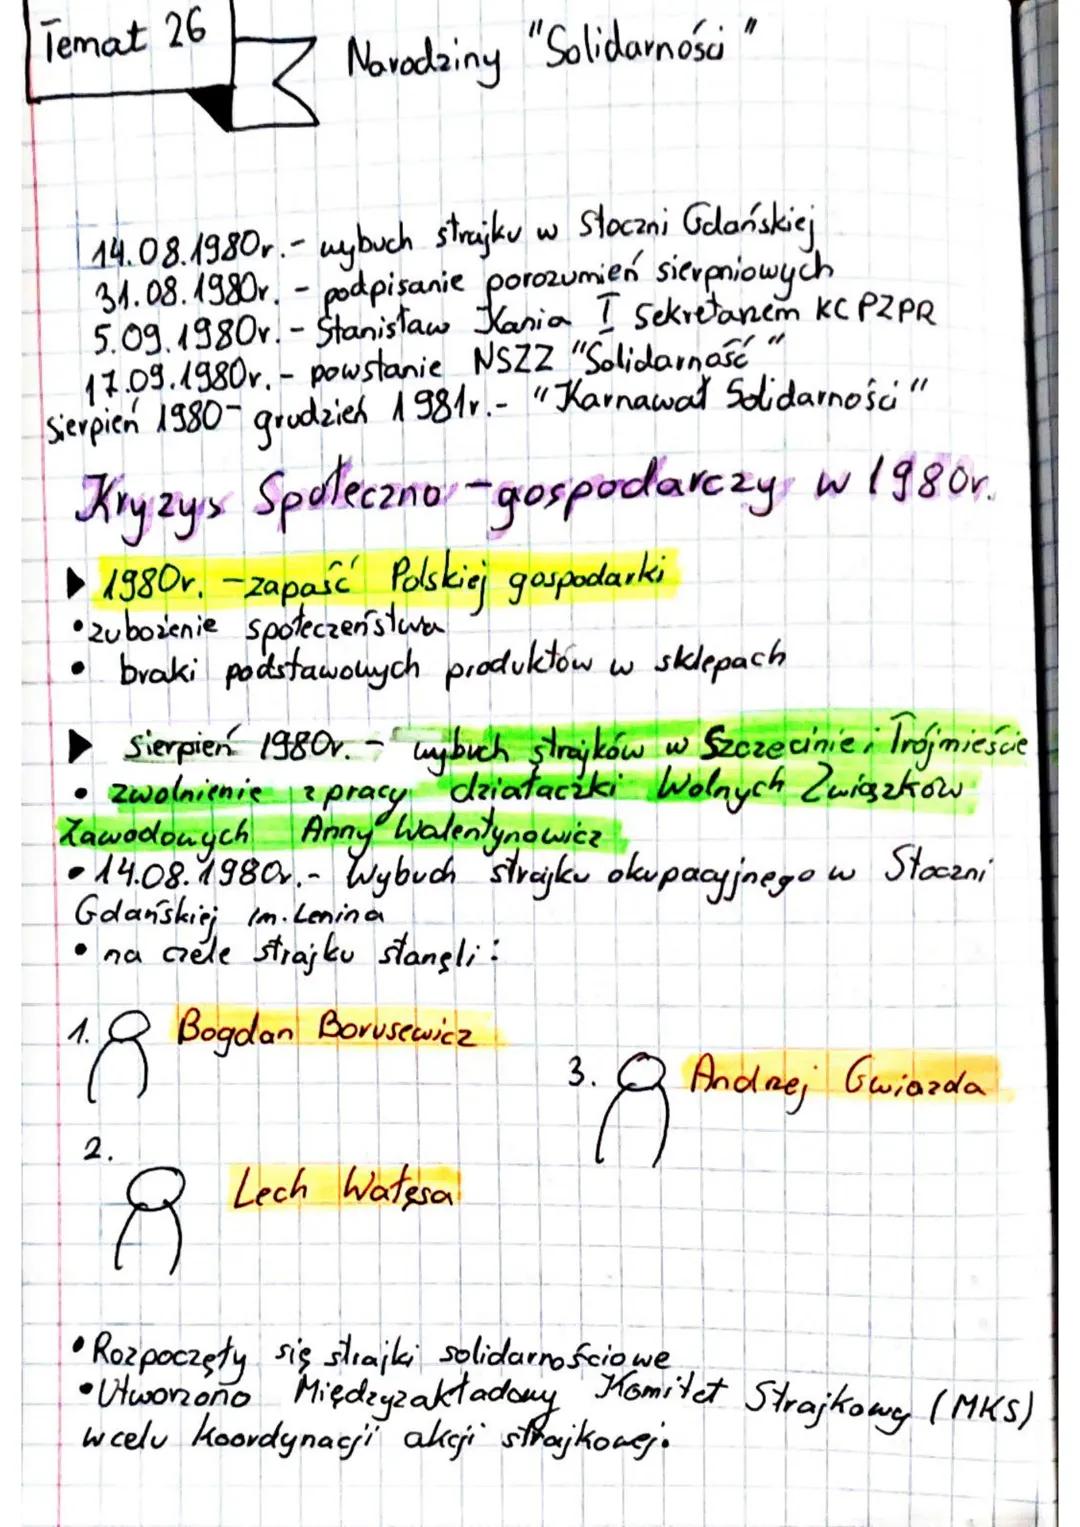 Temat 26
Narodziny "Solidarności"
14.08.1980r.- wybuch strajku w Stoczni Gdańskiej
31.08.1980r. - podpisanie porozumień sierpniowych
5.09.1980r. - Stanisław Kania I Sekretarzem KC PZPR
17.09.1980r. - powstanie NSZZ "Solidarność"
Sierpień 1980- grudzień 1981r.- "Karnawał Solidarności"
Kryzys Społeczno-gospodarczy w 1980r.
▶ 1980r. -zapaść Polskiej gospodarki
• zubożenie społeczeństwa
• braki podstawowych produktów w sklepach
▶ sierpień 1980r. - wybuch strajków w Szczecinie i Trójmieście
• zwolnienie z pracy działaczki Wolnych Związków
Zawodowych Anny Walentynowicz
• 14.08.1980r.- Wybuch strajku okupacyjnego w Stoczni
Gdańskiej im. Lenina
• na czele strajku stanęli:
1. Bogdan Borusewicz
3. Andrzej Gwiazda
2. Lech Wałęsa
• Rozpoczęły się strajki solidarnościowe
• Utworzono Międzyzakładowy Komitet Strajkowy (MKS)
w celu koordynacji akcji strajkowej.